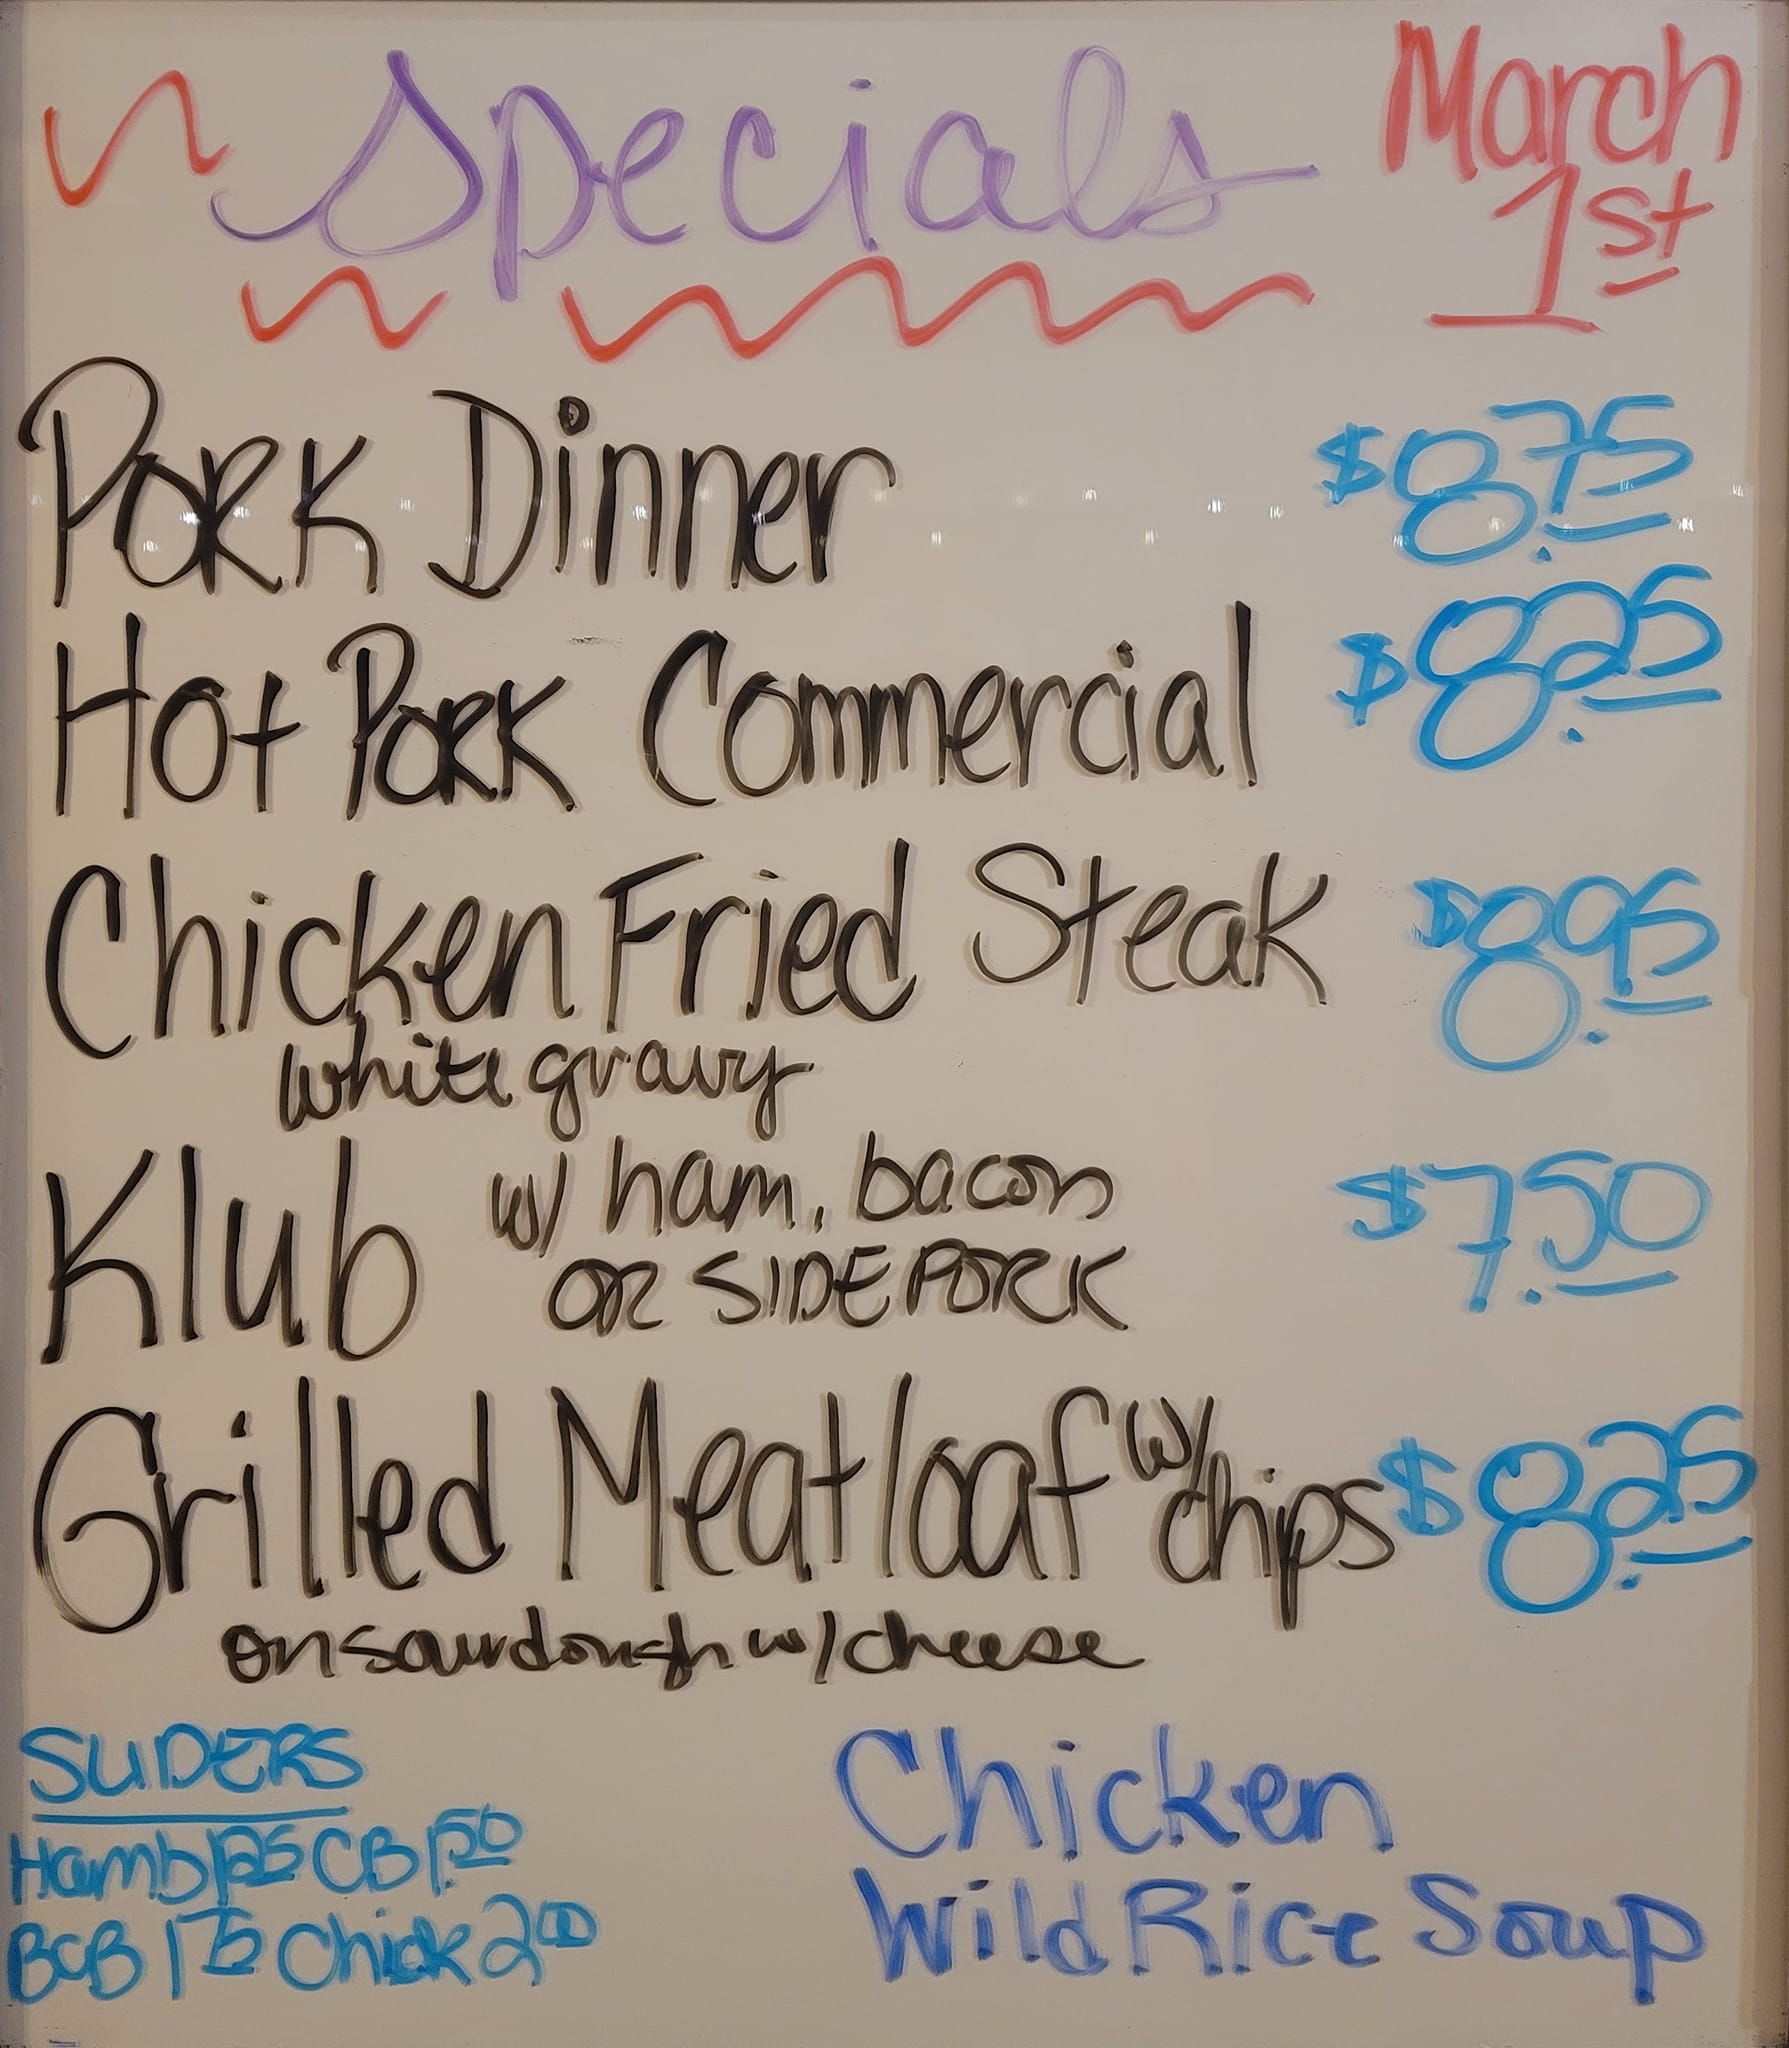 Specials
March
1st
Pork Dinner $8.75
Hot Pork Commercial $8.25
Chicken Fried Steak $8.95
white gravy
Klub w/ ham, bacon $7.50
OR SIDE PORK
Grilled Meatloaf w/ chips $8.25
on sourdough w/ cheese
SLIDERS
Hamb 1.25 CB 1.50
BCB 1.75 Chick 2.00
Chicken
Wild Rice Soup